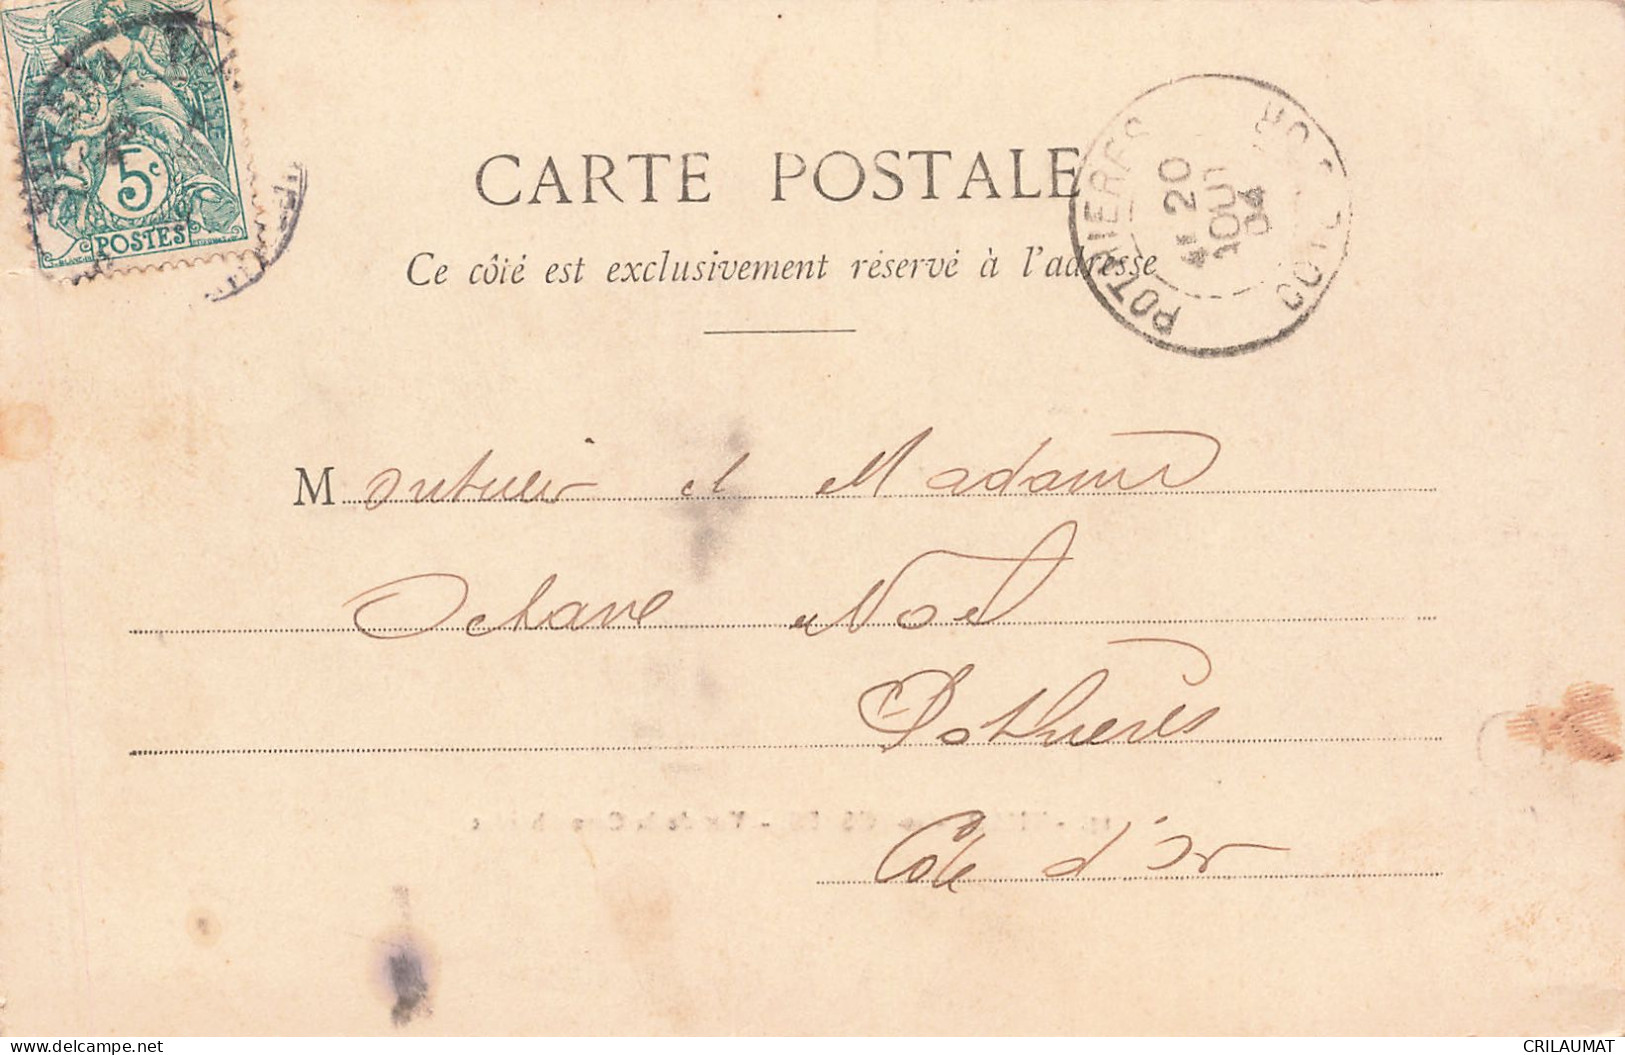 5c
POSTES
CARTE POSTALE
Ce côté est exclusivement réservé à l'adresse
POTHIERES
COTE D'OR
20
AOUT
04
Monsieur et Madame
Octave Noël
Pothières
Côte d'Or
CRILAUMAT